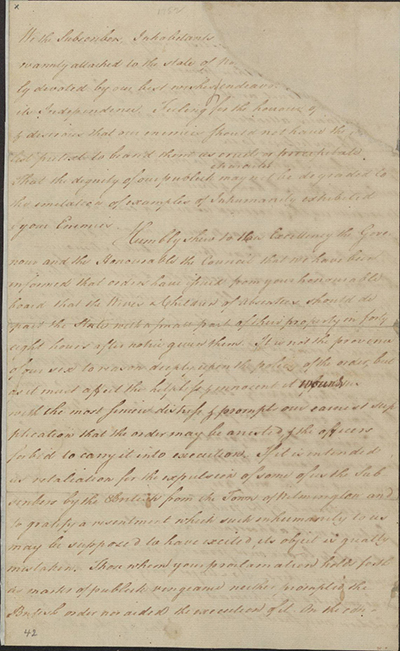 We the Subscribers, Inhabitants
warmly attached to the state of
ly devoted by our best wishes & endeavours
its Independence. Feeling for the honour of
& desirous that our enemies should not have the
That the dignity of our publick may not be degraded to
the imitation of examples of Inhumanity exhibited
by our Enemies.
Humbly shew to the Excellency the Gover
nour and the Honourable the Council that we have been
informed that orders have issued from your honourable
board that the Wives & Children of absentees should de
part the State with a small part of their property in forty
eight hours after notice given them. It is not the province
of our sex to reason deeply upon the policy of the order, but
as it must affect the helpless & innocent it wounds us
with the most sincere distress & prompts our earnest sup
plication that the order may be arrested & the officers
forbid to carry it into execution. If it is intended
as retaliation for the expulsion of some of us the Sub
scribers by the British from the Town of Wilmington and
to gratify a resentment which such inhumanity to us
may be supposed to have excited, its object is greatly
mistaken. Those whom your proclamation holds forth
as marks of publick vengeance neither prompted the
British order nor aided the execution of it. On the con
42